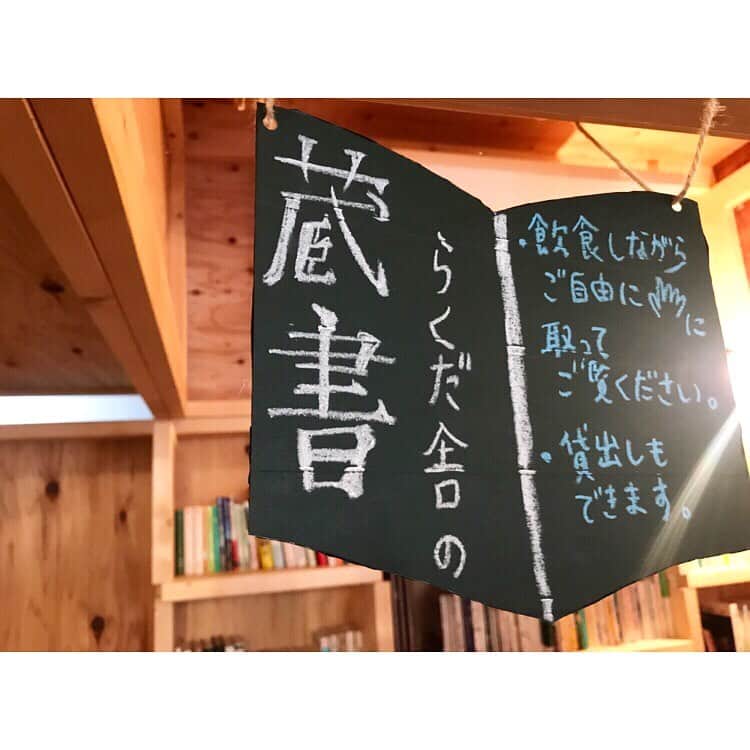 らくだ舎の
蔵書
・飲食しながら
ご自由に に
取って
ご覧ください。
・貸出しも
できます。